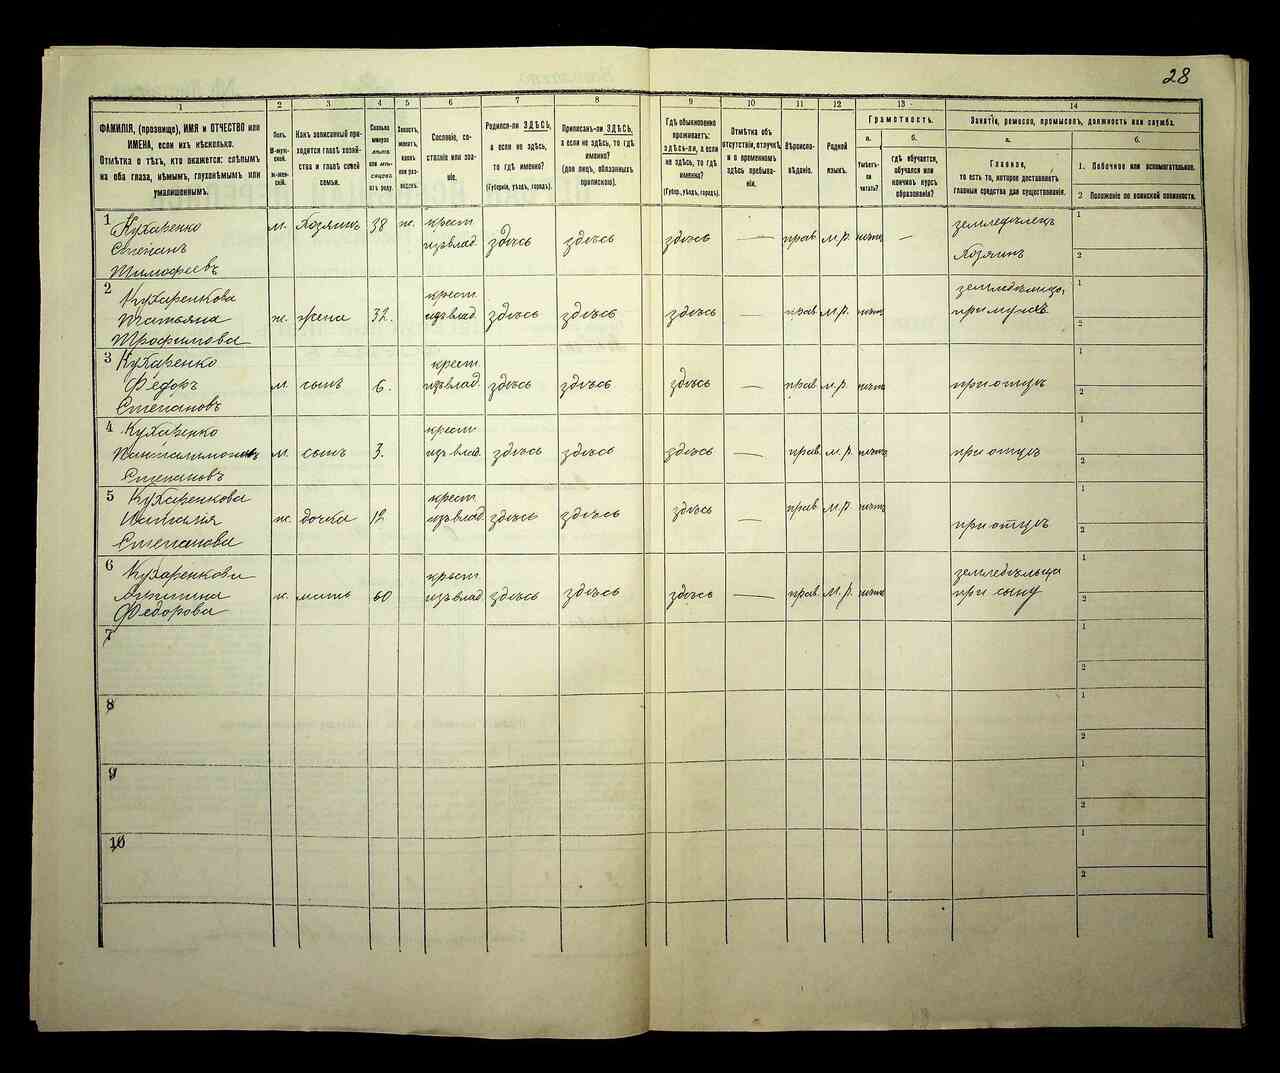 28
1 2 3 4 5 6 7 8 9 10 11 12 13 14
ФАМИЛІЯ, (прозвище), ИМЯ и ОТЧЕСТВО или
ИМЕНА, если ихъ нѣсколько.
Отмѣтка о тѣхъ, кто окажется: слѣпымъ
на оба глаза, нѣмымъ, глухонѣмымъ или
умалишеннымъ.
Полъ.
М-муж-
ской.
Ж-жен-
скій.
Какъ записанный при-
ходится главѣ хозяй-
ства и главѣ своей
семьи.
Сколько
минуло
лѣтъ
или мѣ-
сяцевъ
отъ роду.
Холостъ,
женатъ,
вдовъ
или раз-
веденъ.
Сословіе, со-
стояніе или зва-
ніе.
Родился-ли ЗДѢСЬ,
а если не здѣсь,
то гдѣ именно?
(Губернія, уѣздъ, городъ).
Приписанъ-ли ЗДѢСЬ,
а если не здѣсь, то гдѣ
именно?
(для лицъ, обязанныхъ
припискою).
Гдѣ обыкновенно
проживаетъ:
ЗДѢСЬ-ли, а если
не здѣсь, то гдѣ
именно?
(Губер., уѣздъ, городъ).
Отмѣтка объ
отсутствіи, отлучкѣ
и о временномъ
здѣсь пребыва-
ніи.
Вѣроиспо-
вѣданіе.
Родной
языкъ.
Грамотность.
а.
Умѣетъ-
ли
читать?
б.
гдѣ обучается,
обучался или
кончилъ курсъ
образованія?
Занятіе, ремесло, промыселъ, должность или служба.
а.
Главное,
то есть то, которое доставляетъ
главныя средства для существованія.
б.
1. Побочное или вспомогательное.
2 Положеніе по воинской повинности.
1 Кухаренко
Степанъ
Тимофеевъ
м. Хозяинъ 38 ж. крест
изъ влад. здѣсь здѣсь здѣсь — прав. м.р. нѣтъ —
земледѣлецъ
Хозяинъ
1
2
2 Кухаренкова
Татьяна
Трофимова
ж. жена 32. крест
изъ влад. здѣсь здѣсь здѣсь — прав. м.р. нѣтъ
при мужѣ
1
2
3 Кухаренко
Федоръ
Степановъ
м. сынъ 6. крест
изъ влад. здѣсь здѣсь здѣсь — прав. м.р. нѣтъ при отцѣ
1
2
4 Кухаренко
Степановъ
м. сынъ 3. крест
изъ влад. здѣсь здѣсь здѣсь — прав. м.р. нѣтъ при отцѣ
1
2
5 Кухаренкова
Наталія
Степанова
ж. дочка 12 крест
изъ влад. здѣсь здѣсь здѣсь — прав. м.р. нѣтъ при отцѣ
1
2
6 Кухаренкова
Федорова
ж. мать 60 крест
изъ влад. здѣсь здѣсь здѣсь — прав. м.р. нѣтъ
при сыну
1
2
7
1
2
8
1
2
9
1
2
10
1
2